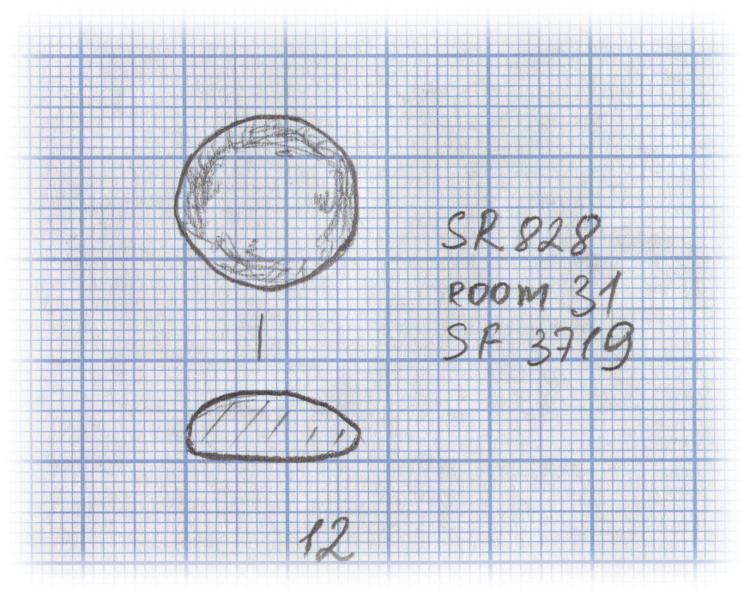 SR 828
room 31
SF 3719
12